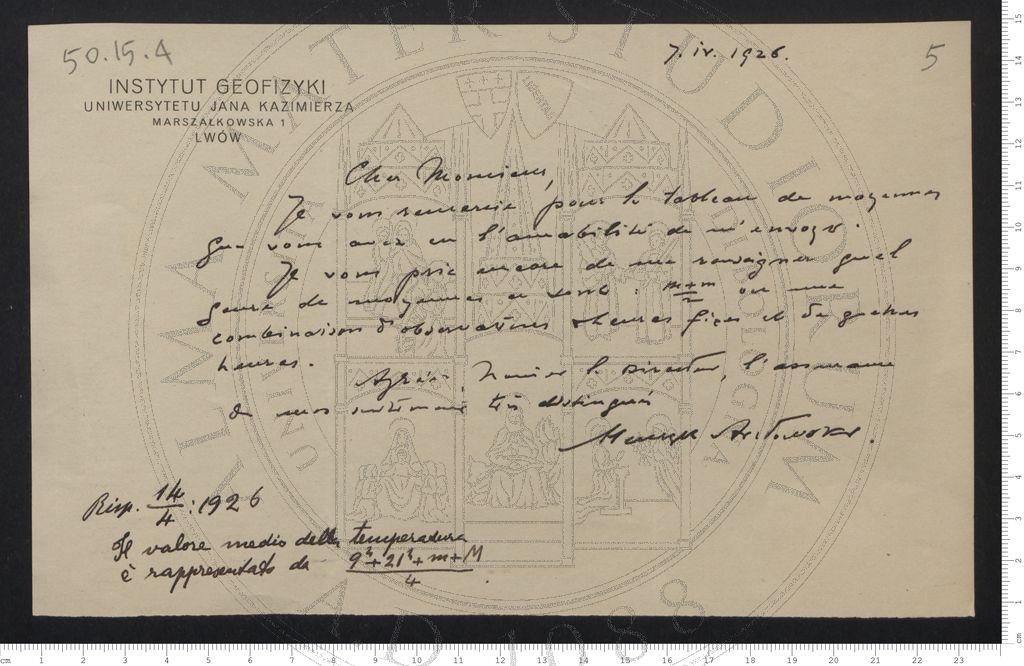 50.15.4
7. IV. 1926.
5
INSTYTUT GEOFIZYKI
UNIWERSYTETU JANA KAZIMIERZA
MARSZAŁKOWSKA 1
LWÓW
Cher Monsieur,
Je vous remercie pour le tableau de moyennes
que vous avez eu l'amabilité de m'envoyer.
Je vous prie encore de me renseigner quel
genre de moyennes ce sont : m+m/2 ou une
combinaison d'observations à heures fixes et de quelques
heures.
Agréez, Monsieur le Directeur, l'assurance
de mes sentiments très distingués
Henryk Arctowski.
Risp. 14/4 : 1926
Il valore medio della temperatura
è rappresentato da 9h+21h+m+M/4.
ALMA MATER STUDIORUM
A.D. 1088